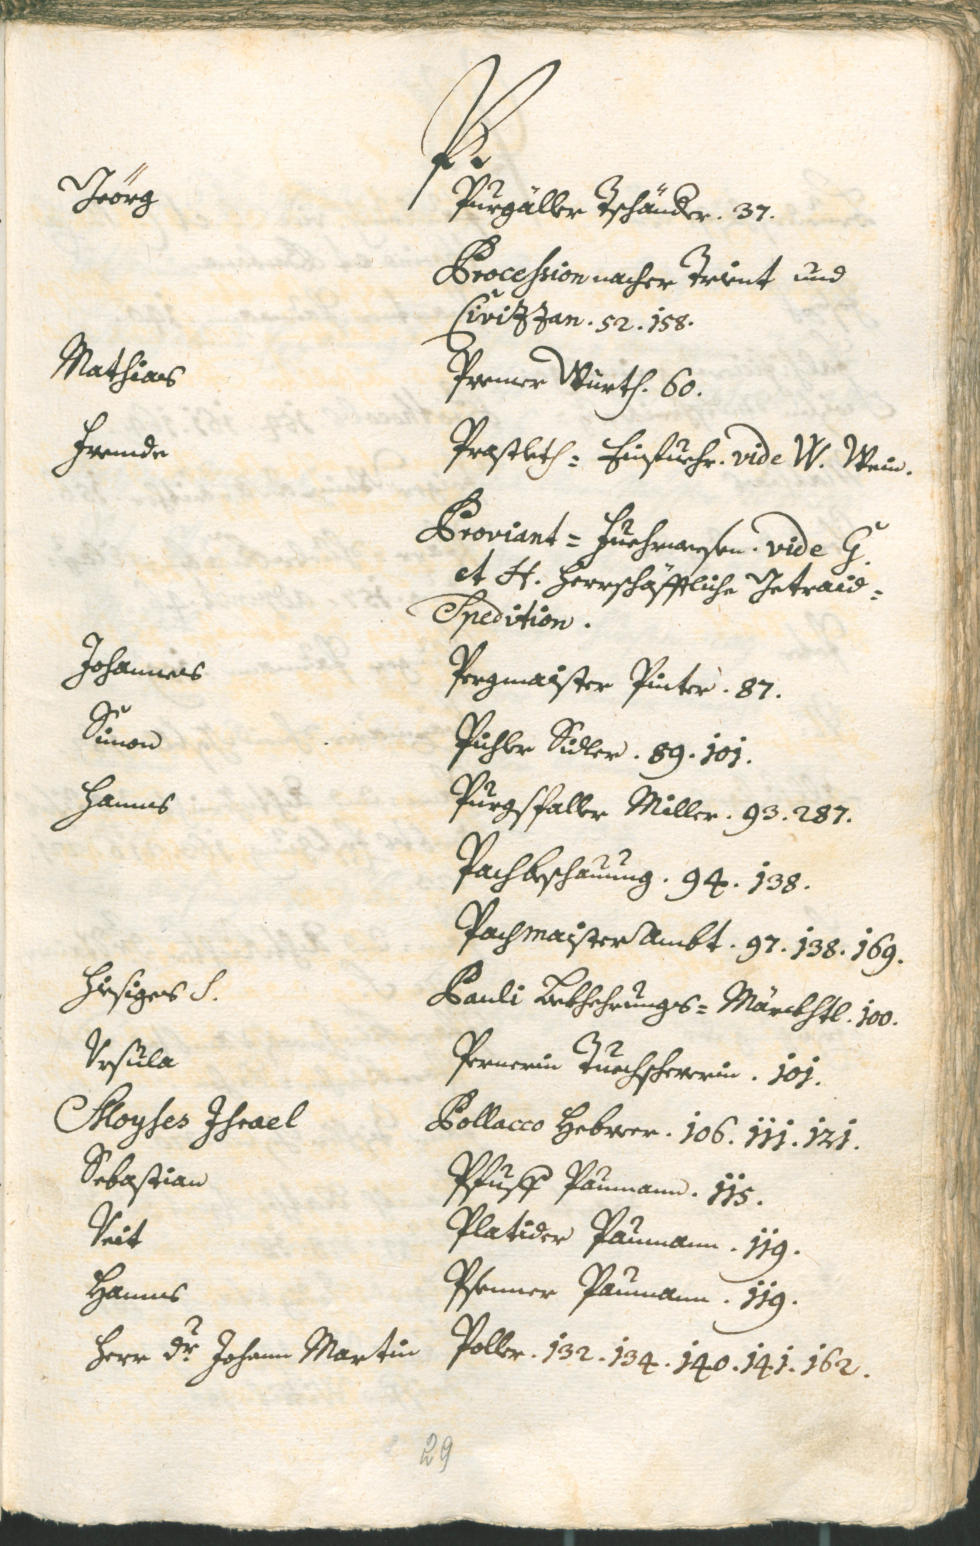 P
Jeörg Purgäller Tschänder. 37.
Procession nacher Trient und
Civizzan. 52. 158.
Mathias Premer Würth. 60.
Fremde Prästleth= Einfuehr. vide W. Wein.
Proviant= Fuehrwesen. vide G.
et H. Herrschäfftliche Getraid=
Spedition.
Johannes Pergmaister Pinter. 87.
Simon Pichler Sidler. 89. 101.
Hanns Purgstaller Miller. 93. 287.
Pachbeschauung. 94. 138.
Pachmaister Ambt. 97. 138. 169.
Hiesiges S. Pauli Bekhehrungs= Märckhtl. 100.
Ursula Pernerin Tuechschererin. 101.
Moyses Israel Pollacco Hebreer. 106. 111. 121.
Sebastian Paumann. 115.
Veit Platider Paumann. 119.
Hanns Psenner Paumann. 119.
Herr Dr. Johann Martin Poller. 132. 134. 140. 141. 162.
29